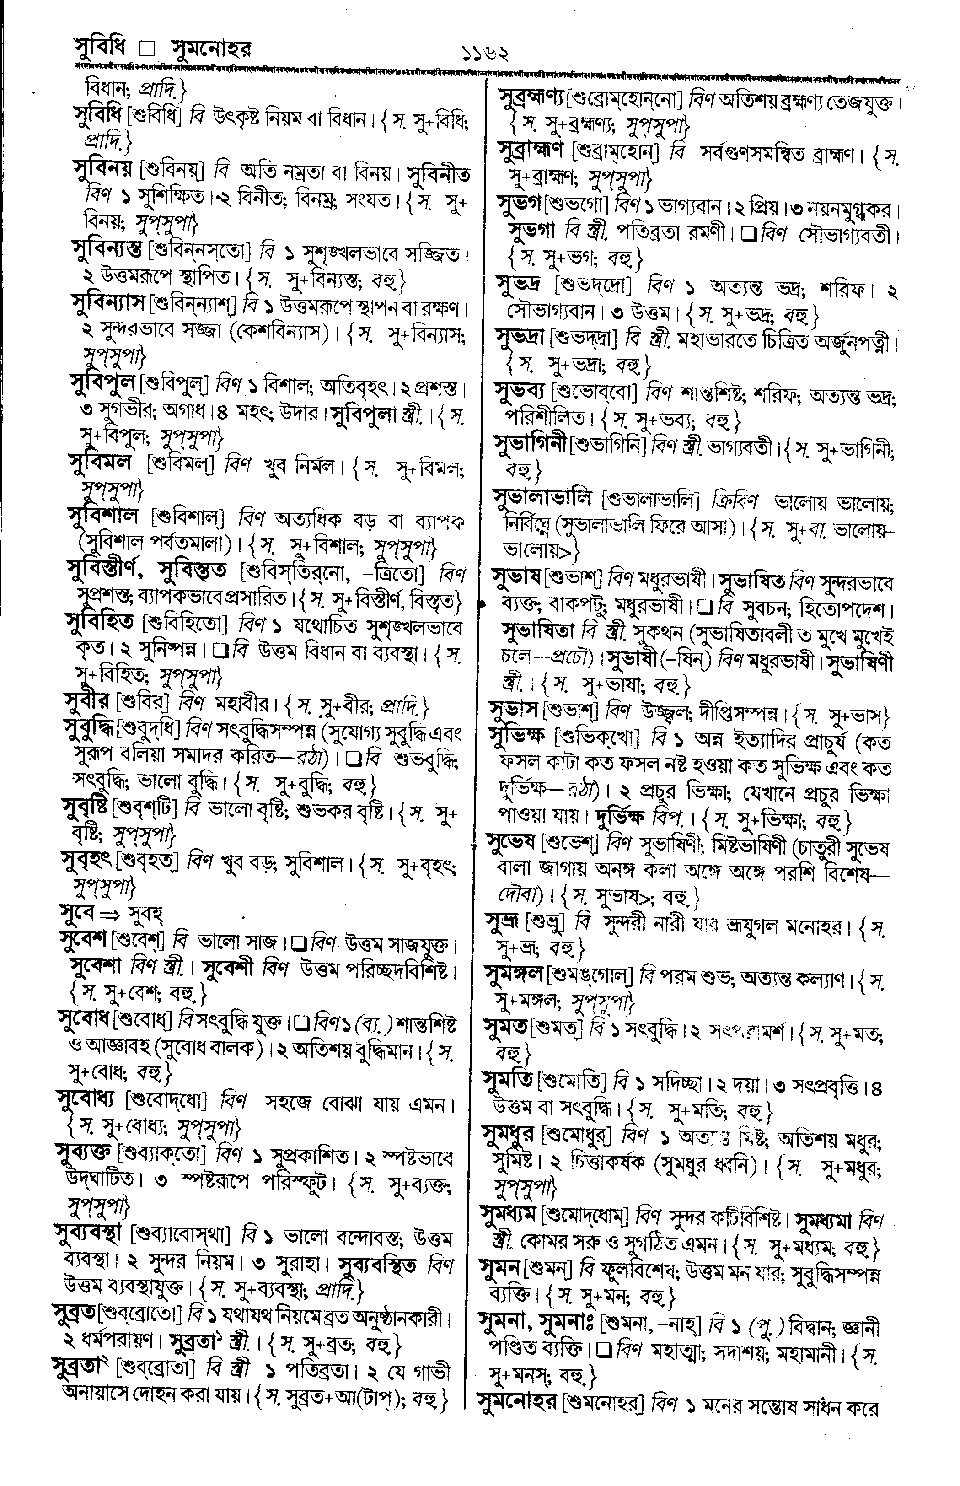 সুবিধি □ সুমনোহর
১১৬২
বিধান; প্রাদি.}
সুবিধি [শুবিধি] বি উৎকৃষ্ট নিয়ম বা বিধান। {স. সু+বিধি;
প্রাদি.}
সুবিনয় [শুবিনয়্] বি অতি নম্রতা বা বিনয়। সুবিনীত
বিণ ১ সুশিক্ষিত। ২ বিনীত; বিনম্র; সংযত। {স. সু+
বিনয়; সুপ্‌সুপা}
সুবিন্যস্ত [শুবিন্‌নস্‌তো] বি ১ সুশৃঙ্খলভাবে সজ্জিত।
২ উত্তমরূপে স্থাপিত। {স. সু+বিন্যস্ত; বহু.}
সুবিন্যাস [শুবিন্‌ন্যাশ্] বি ১ উত্তমরূপে স্থাপন বা রক্ষণ।
২ সুন্দরভাবে সজ্জা (কেশবিন্যাস)। {স. সু+বিন্যাস;
সুপ্‌সুপা}
সুবিপুল [শুবিপুল্] বিণ ১ বিশাল; অতিবৃহৎ। ২ প্রশস্ত।
৩ সুগভীর; অগাধ। ৪ মহৎ; উদার। সুবিপুলা স্ত্রী.। {স.
সু+বিপুল; সুপ্‌সুপা}
সুবিমল [শুবিমল্] বিণ খুব নির্মল। {স. সু+বিমল;
সুপ্‌সুপা}
সুবিশাল [শুবিশাল্] বিণ অত্যধিক বড় বা ব্যাপক
(সুবিশাল পর্বতমালা)। {স. সু+বিশাল; সুপ্‌সুপা}
সুবিস্তীর্ণ, সুবিস্তৃত [শুবিস্‌তির্‌নো, –ত্রিতো] বিণ
সুপ্রশস্ত; ব্যাপকভাবে প্রসারিত। {স. সু+বিস্তীর্ণ, বিস্তৃত}
সুবিহিত [শুবিহিতো] বিণ ১ যথোচিত সুশৃঙ্খলভাবে
কৃত। ২ সুনিষ্পন্ন। □ বি উত্তম বিধান বা ব্যবস্থা। {স.
সু+বিহিত; সুপ্‌সুপা}
সুবীর [শুবির্] বিণ মহাবীর। {স. সু+বীর; প্রাদি.}
সুবুদ্ধি [শুবুদ্‌ধি] বিণ সৎবুদ্ধিসম্পন্ন (সুযোগ্য সুবুদ্ধি এবং
সুরূপ বলিয়া সমাদর করিত—রঠা)। □ বি শুভবুদ্ধি;
সৎবুদ্ধি; ভালো বুদ্ধি। {স. সু+বুদ্ধি; বহু.}
সুবৃষ্টি [শুবৃশ্‌টি] বি ভালো বৃষ্টি; শুভকর বৃষ্টি। {স. সু+
বৃষ্টি; সুপ্‌সুপা}
সুবৃহৎ [শুবৃহত্] বিণ খুব বড়; সুবিশাল। {স. সু+বৃহৎ;
সুপ্‌সুপা}
সুবে ⇒ সুবহ্
সুবেশ [শুবেশ্] বি ভালো সাজ। □ বিণ উত্তম সাজযুক্ত।
সুবেশা বিণ স্ত্রী.। সুবেশী বিণ উত্তম পরিচ্ছদবিশিষ্ট।
{স. সু+বেশ; বহু.}
সুবোধ [শুবোধ্] বি সৎবুদ্ধি যুক্ত। □ বিণ ১ (ব্য.) শান্তশিষ্ট
ও আজ্ঞাবহ (সুবোধ বালক)। ২ অতিশয় বুদ্ধিমান। {স.
সু+বোধ; বহু.}
সুবোধ্য [শুবোদ্‌ধো] বিণ সহজে বোঝা যায় এমন।
{স. সু+বোধ্য; সুপ্‌সুপা}
সুব্যক্ত [শুব্যাক্‌তো] বিণ ১ সুপ্রকাশিত। ২ স্পষ্টভাবে
উদ্‌ঘাটিত। ৩ স্পষ্টরূপে পরিস্ফুট। {স. সু+ব্যক্ত;
সুপ্‌সুপা}
সুব্যবস্থা [শুব্যাবোস্‌থা] বি ১ ভালো বন্দোবস্ত; উত্তম
ব্যবস্থা। ২ সুন্দর নিয়ম। ৩ সুরাহা। সুব্যবস্থিত বিণ
উত্তম ব্যবস্থাযুক্ত। {স. সু+ব্যবস্থা; প্রাদি.}
সুব্রত [শুব্‌ব্রোতো] বি ১ যথাযথ নিয়মে ব্রত অনুষ্ঠানকারী।
২ ধর্মপরায়ণ। সুব্রতা¹ স্ত্রী.। {স. সু+ব্রত; বহু.}
সুব্রতা² [শুব্‌ব্রোতা] বি স্ত্রী ১ পতিব্রতা। ২ যে গাভী
অনায়াসে দোহন করা যায়। {স. সুব্রত+আ(টাপ্); বহু.}
সুব্রহ্মণ্য [শুব্রোম্‌হোন্‌নো] বিণ অতিশয় ব্রহ্মণ্য তেজযুক্ত।
{স. সু+ব্রহ্মণ্য; সুপ্‌সুপা}
সুব্রাহ্মণ [শুব্রাম্‌হোন্] বি সর্বগুণসমন্বিত ব্রাহ্মণ। {স.
সু+ব্রাহ্মণ; সুপ্‌সুপা}
সুভগ [শুভগো] বিণ ১ ভাগ্যবান। ২ প্রিয়। ৩ নয়নমুগ্ধকর।
সুভগা বি স্ত্রী. পতিব্রতা রমণী। □ বিণ সৌভাগ্যবতী।
{স. সু+ভগ; বহু.}
সুভদ্র [শুভদ্‌দ্রো] বিণ ১ অত্যন্ত ভদ্র; শরিফ। ২
সৌভাগ্যবান। ৩ উত্তম। {স. সু+ভদ্র; বহু.}
সুভদ্রা [শুভদ্‌দ্রা] বি স্ত্রী. মহাভারতে চিত্রিত অর্জুনপত্নী।
{স. সু+ভদ্রা; বহু.}
সুভব্য [শুভোব্‌বো] বিণ শান্তশিষ্ট; শরিফ; অত্যন্ত ভদ্র;
পরিশীলিত। {স. সু+ভব্য; বহু.}
সুভাগিনী [শুভাগিনি] বিণ স্ত্রী. ভাগ্যবতী। {স. সু+ভাগিনী;
বহু.}
সুভালাভালি [শুভালাভালি] ক্রিবিণ ভালোয় ভালোয়;
নির্বিঘ্নে (সুভালাভালি ফিরে আসা)। {স. সু+বা. ভালোয়–
ভালোয়>}
সুভাষ [শুভাশ্] বিণ মধুরভাষী। সুভাষিত বিণ সুন্দরভাবে
ব্যক্ত; বাকপটু; মধুরভাষী। □ বি সুবচন; হিতোপদেশ।
সুভাষিতা বি স্ত্রী. সুকথন (সুভাষিতাবলী ত মুখে মুখেই
চলে—প্রচৌ)। সুভাষী (–ষিন্) বিণ মধুরভাষী। সুভাষিণী
স্ত্রী.। {স. সু+ভাষা; বহু.}
সুভাস [শুভাশ্] বিণ উজ্জ্বল; দীপ্তিসম্পন্ন। {স. সু+ভাস}
সুভিক্ষ [শুভিক্‌খো] বি ১ অন্ন ইত্যাদির প্রাচুর্য (কত
ফসল কাটা কত ফসল নষ্ট হওয়া কত সুভিক্ষ এবং কত
দুর্ভিক্ষ—রঠা)। ২ প্রচুর ভিক্ষা; যেখানে প্রচুর ভিক্ষা
পাওয়া যায়। দুর্ভিক্ষ বিপ.। {স. সু+ভিক্ষা; বহু.}
সুভেষ [শুভেশ্] বিণ সুভাষিণী; মিষ্টভাষিণী (চাতুরী সুভেষ
বালা জাগায় অনঙ্গ কলা অঙ্গে অঙ্গে পরশি বিশেষ—
দৌবা)। {স. সুভাষ>; বহু.}
সুভ্রূ [শুভ্রূ] বি সুন্দরী নারী যার ভ্রূযুগল মনোহর। {স.
সু+ভ্রূ; বহু.}
সুমঙ্গল [শুমঙ্‌গোল্] বি পরম শুভ; অত্যন্ত কল্যাণ। {স.
সু+মঙ্গল; সুপ্‌সুপা}
সুমত [শুমত্] বি ১ সৎবুদ্ধি। ২ সৎপরামর্শ। {স. সু+মত;
বহু.}
সুমতি [শুমোতি] বি ১ সদিচ্ছা। ২ দয়া। ৩ সৎপ্রবৃত্তি। ৪
উত্তম বা সৎবুদ্ধি। {স. সু+মতি; বহু.}
সুমধুর [শুমোধুর্] বিণ ১ অত্যন্ত মিষ্ট; অতিশয় মধুর;
সুমিষ্ট। ২ চিত্তাকর্ষক (সুমধুর ধ্বনি)। {স. সু+মধুর;
সুপ্‌সুপা}
সুমধ্যম [শুমোদ্‌ধোম্] বিণ সুন্দর কটিবিশিষ্ট। সুমধ্যমা বিণ
স্ত্রী. কোমর সরু ও সুগঠিত এমন। {স. সু+মধ্যম; বহু.}
সুমন [শুমন্] বি ফুলবিশেষ; উত্তম মন যার; সুবুদ্ধিসম্পন্ন
ব্যক্তি। {স. সু+মন; বহু.}
সুমনা, সুমনাঃ [শুমনা, –নাহ্] বি ১ (পু.) বিদ্বান; জ্ঞানী
পণ্ডিত ব্যক্তি। □ বিণ মহাত্মা; সদাশয়; মহামানী। {স.
সু+মনস্; বহু.}
সুমনোহর [শুমনোহর্] বিণ ১ মনের সন্তোষ সাধন করে